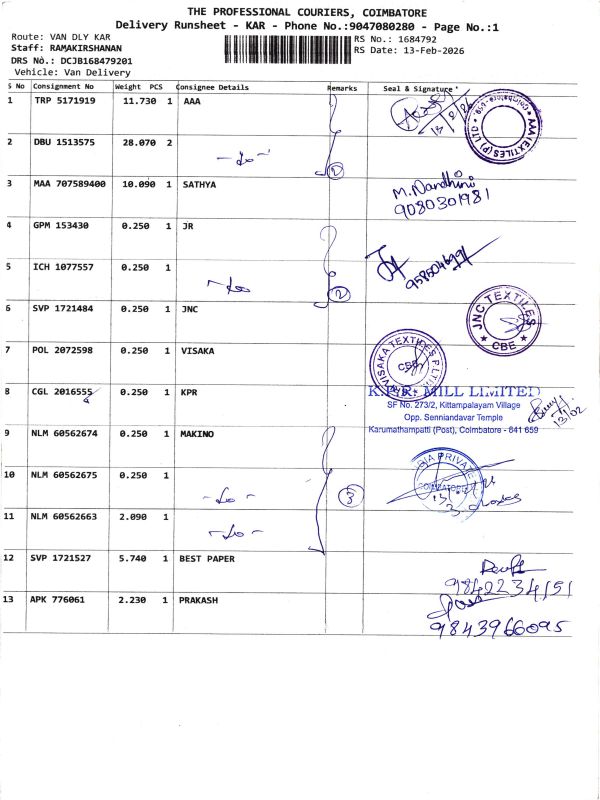 THE PROFESSIONAL COURIERS, COIMBATORE
Delivery Runsheet - KAR - Phone No.:9047080280 - Page No.:1
Route: VAN DLY KAR
Staff: RAMAKIRSHANAN
DRS No.: DCJB168479201
Vehicle: Van Delivery
RS No.: 1684792
RS Date: 13-Feb-2026
S No Consignment No Weight PCS Consignee Details Remarks Seal & Signature
1 TRP 5171919 11.730 1 AAA
AAA TEXTILES (P) LTD
2 DBU 1513575 28.070 2 -do-
2
3 MAA 707589400 10.090 1 SATHYA
M. Nandhini
9080301981
4 GPM 153430 0.250 1 JR
5 ICH 1077557 0.250 1 -do-
2
6 SVP 1721484 0.250 1 JNC
JNC TEXTILES
CBE
7 POL 2072598 0.250 1 VISAKA
VISAKA TEXTILES P.LTD
CBE
8 CGL 2016555 0.250 1 KPR
K.P.R. MILL LIMITED
SF No. 273/2, Kittampalayam Village
Opp. Senniandavar Temple
Karumathampatti (Post), Coimbatore - 641 659
13/02
9 NLM 60562674 0.250 1 MAKINO
10 NLM 60562675 0.250 1 -do-
3
COIMBATORE
11 NLM 60562663 2.090 1 -do-
12 SVP 1721527 5.740 1 BEST PAPER
9842234151
13 APK 776061 2.230 1 PRAKASH
9843966095